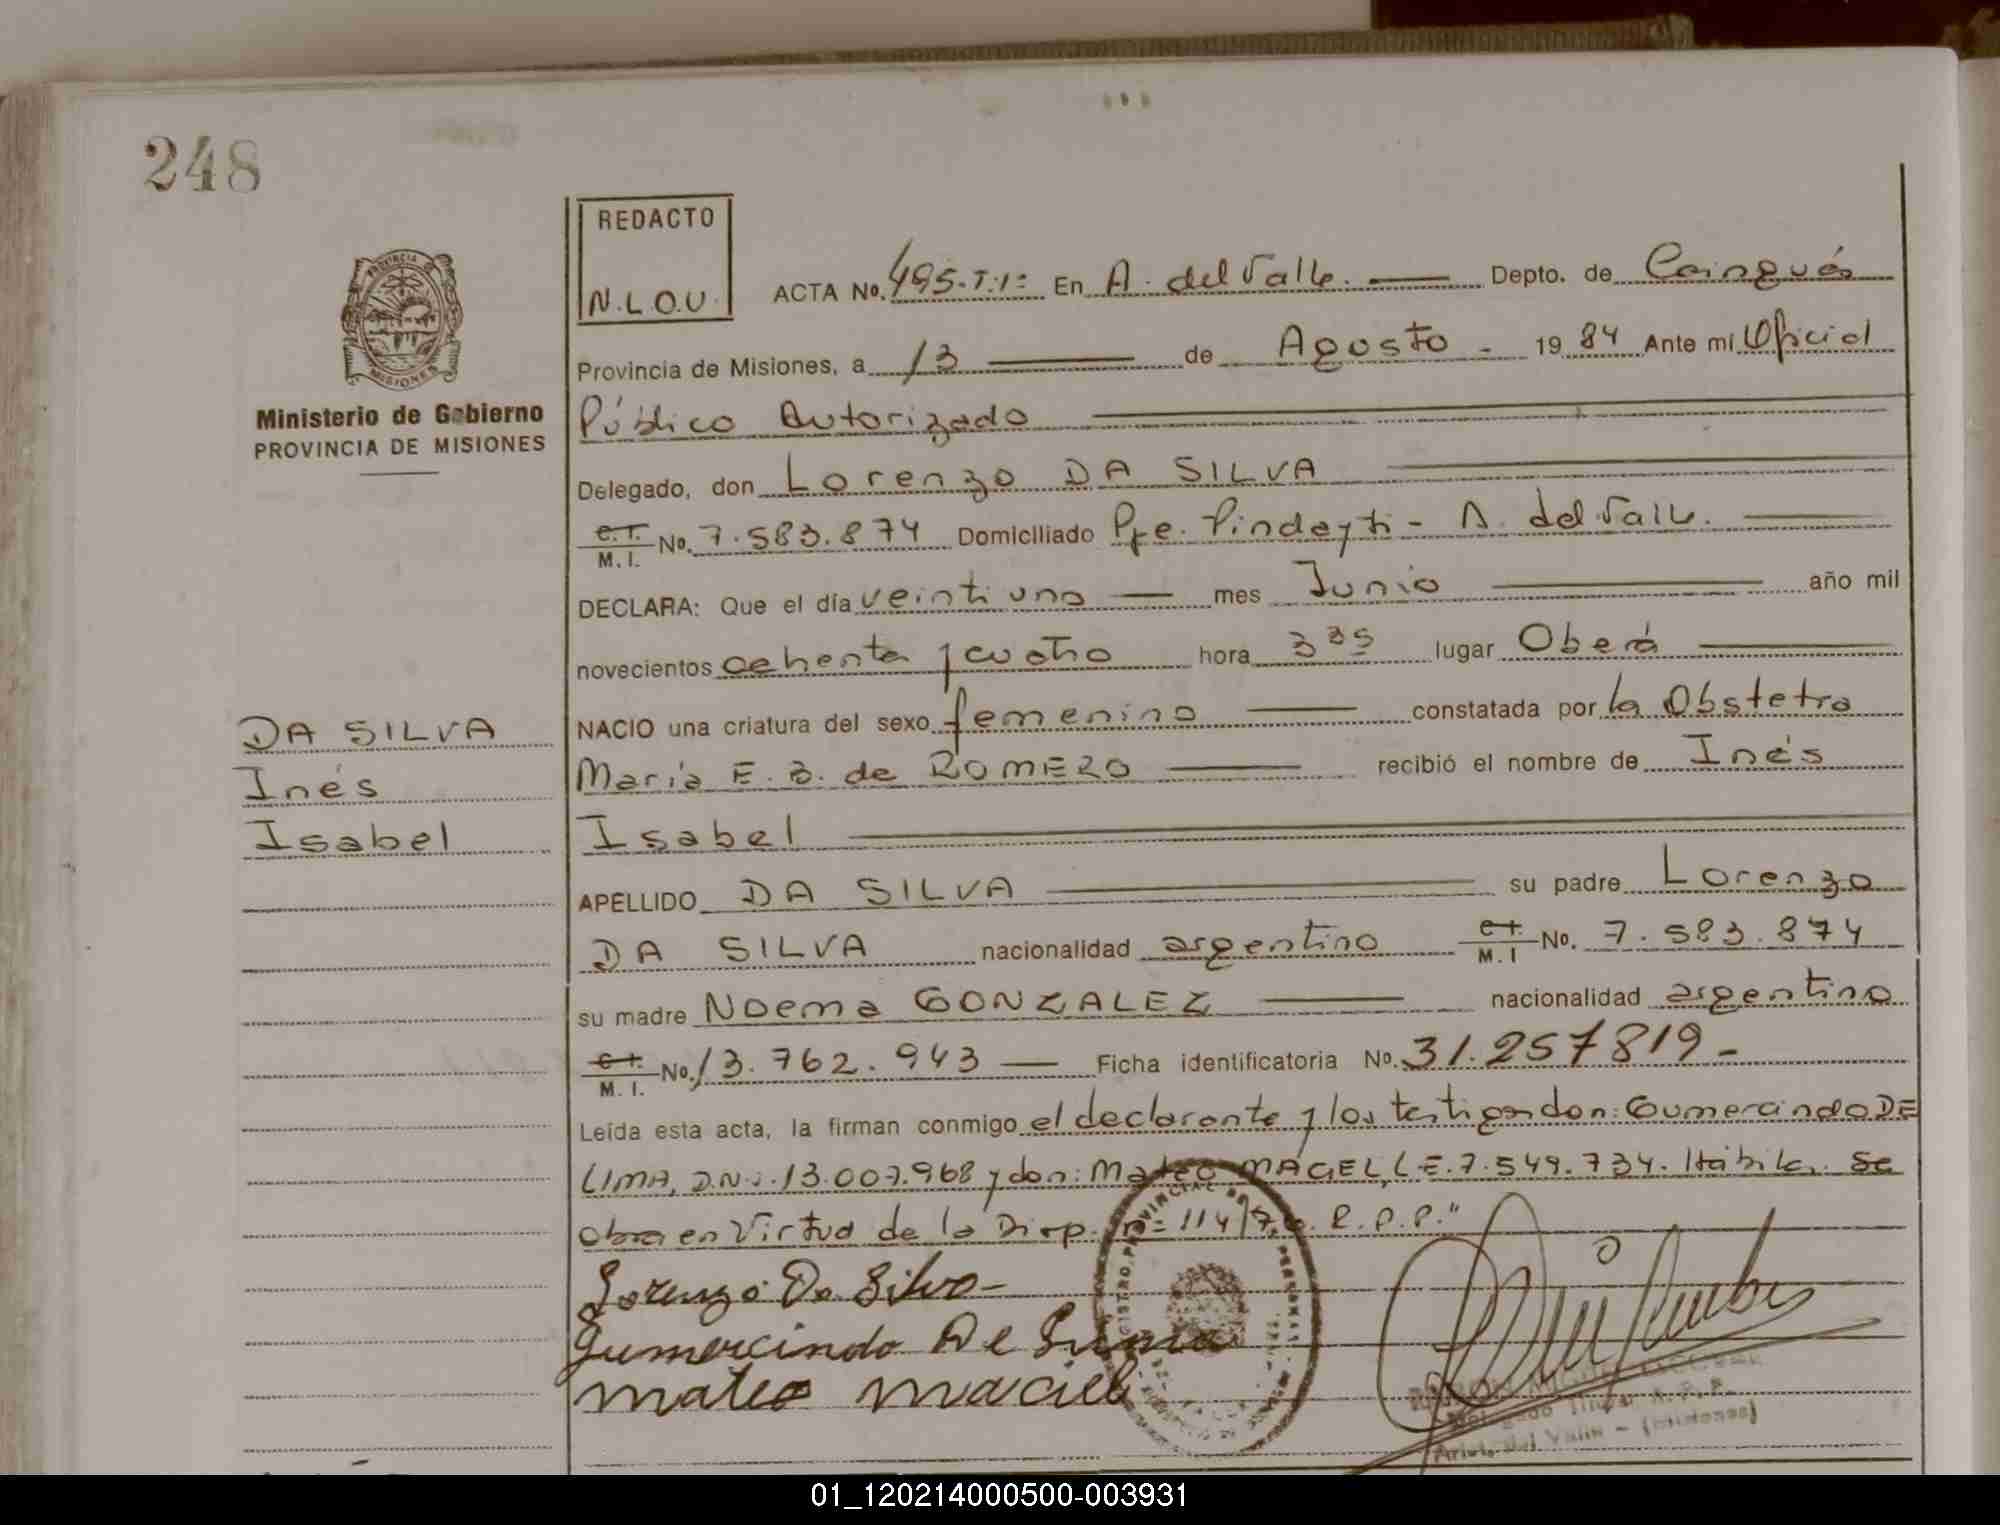 248
REDACTO
N.L.O.U.
PROVINCIA
MISIONES
Ministerio de Gobierno
PROVINCIA DE MISIONES
ACTA No. 495.T.1: En A. del Valle. Depto. de Cainguás
Provincia de Misiones, a 13 de Agosto - 19 84 Ante mi Oficial
Público Autorizado
Delegado, don Lorenzo DA SILVA
C.I. M.I. No. 7.583.874 Domiciliado Pje. Pindayti - A. del Valle.
DECLARA: Que el día veintiuno mes Junio año mil
novecientos ochenta y cuatro hora 3 35 lugar Oberá
NACIO una criatura del sexo femenino constatada por la Obstetra
María E. B. de ROMERO recibió el nombre de Inés
Isabel
APELLIDO DA SILVA su padre Lorenzo
DA SILVA nacionalidad argentino C.I. M.I No. 7.583.874
su madre Noema GONZALEZ nacionalidad argentino
C.I. M.I. No. 13.762.943 Ficha identificatoria No. 31.257819-
Leída esta acta, la firman conmigo el declarante y los testigos don: Gumercindo DE
LIMA, D.N.I. 13.007.968 y don: Mateo MACIEL, L.E. 7.549.734. Hábiles. Se
obra en Virtud de la Disp. nº 114/76. R.P.P."
DA SILVA
Inés
Isabel
Lorenzo Da Silva-
Gumercindo De Lima
mateo maciel
Delegado Titular R.P.P.
Arist. del Valle - (Misiones)
01_120214000500-003931